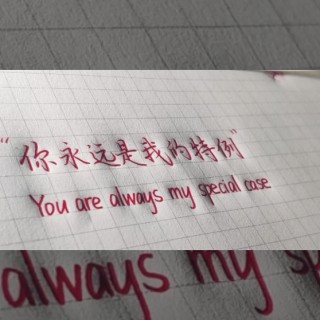 “你永远是我的特例”
You are always my special case